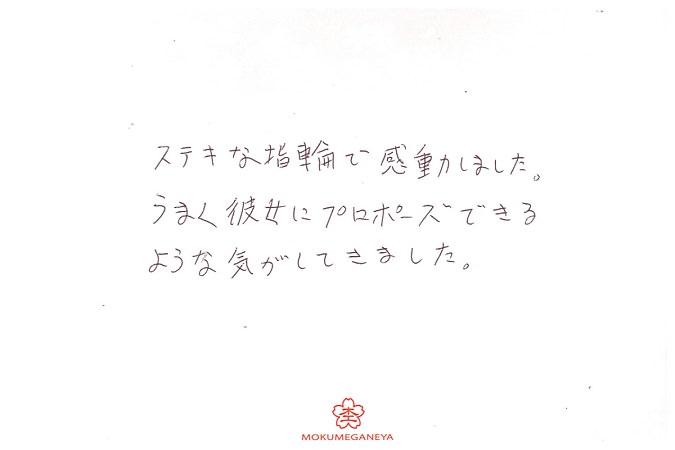 ステキな指輪で感動しました。
うまく彼女にプロポーズできる
ような気がしてきました。
杢
MOKUMEGANEYA